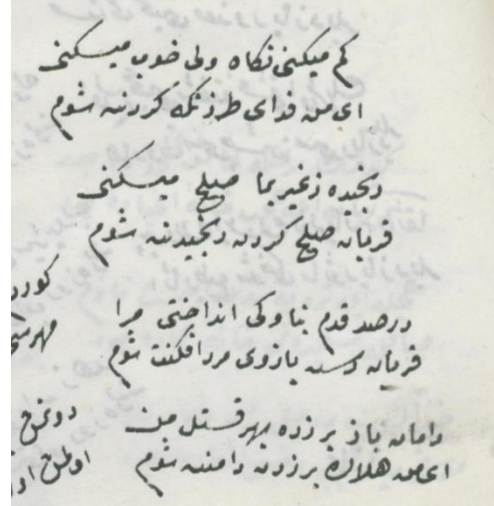 کم میکنی نگاه ولی خوب میکنی
ای من فدای طرز نگه کردنت شوم
رنجیده ز غیر بما صلح میکنی
قربان صلح کردن رنجیدنت شوم
در صد قدم بناوکی انداختی مرا
قربان دست بازوی مردافکنت شوم
دامان ناز بر زده بهر قتل من
ای من هلاک بر زدن دامنت شوم